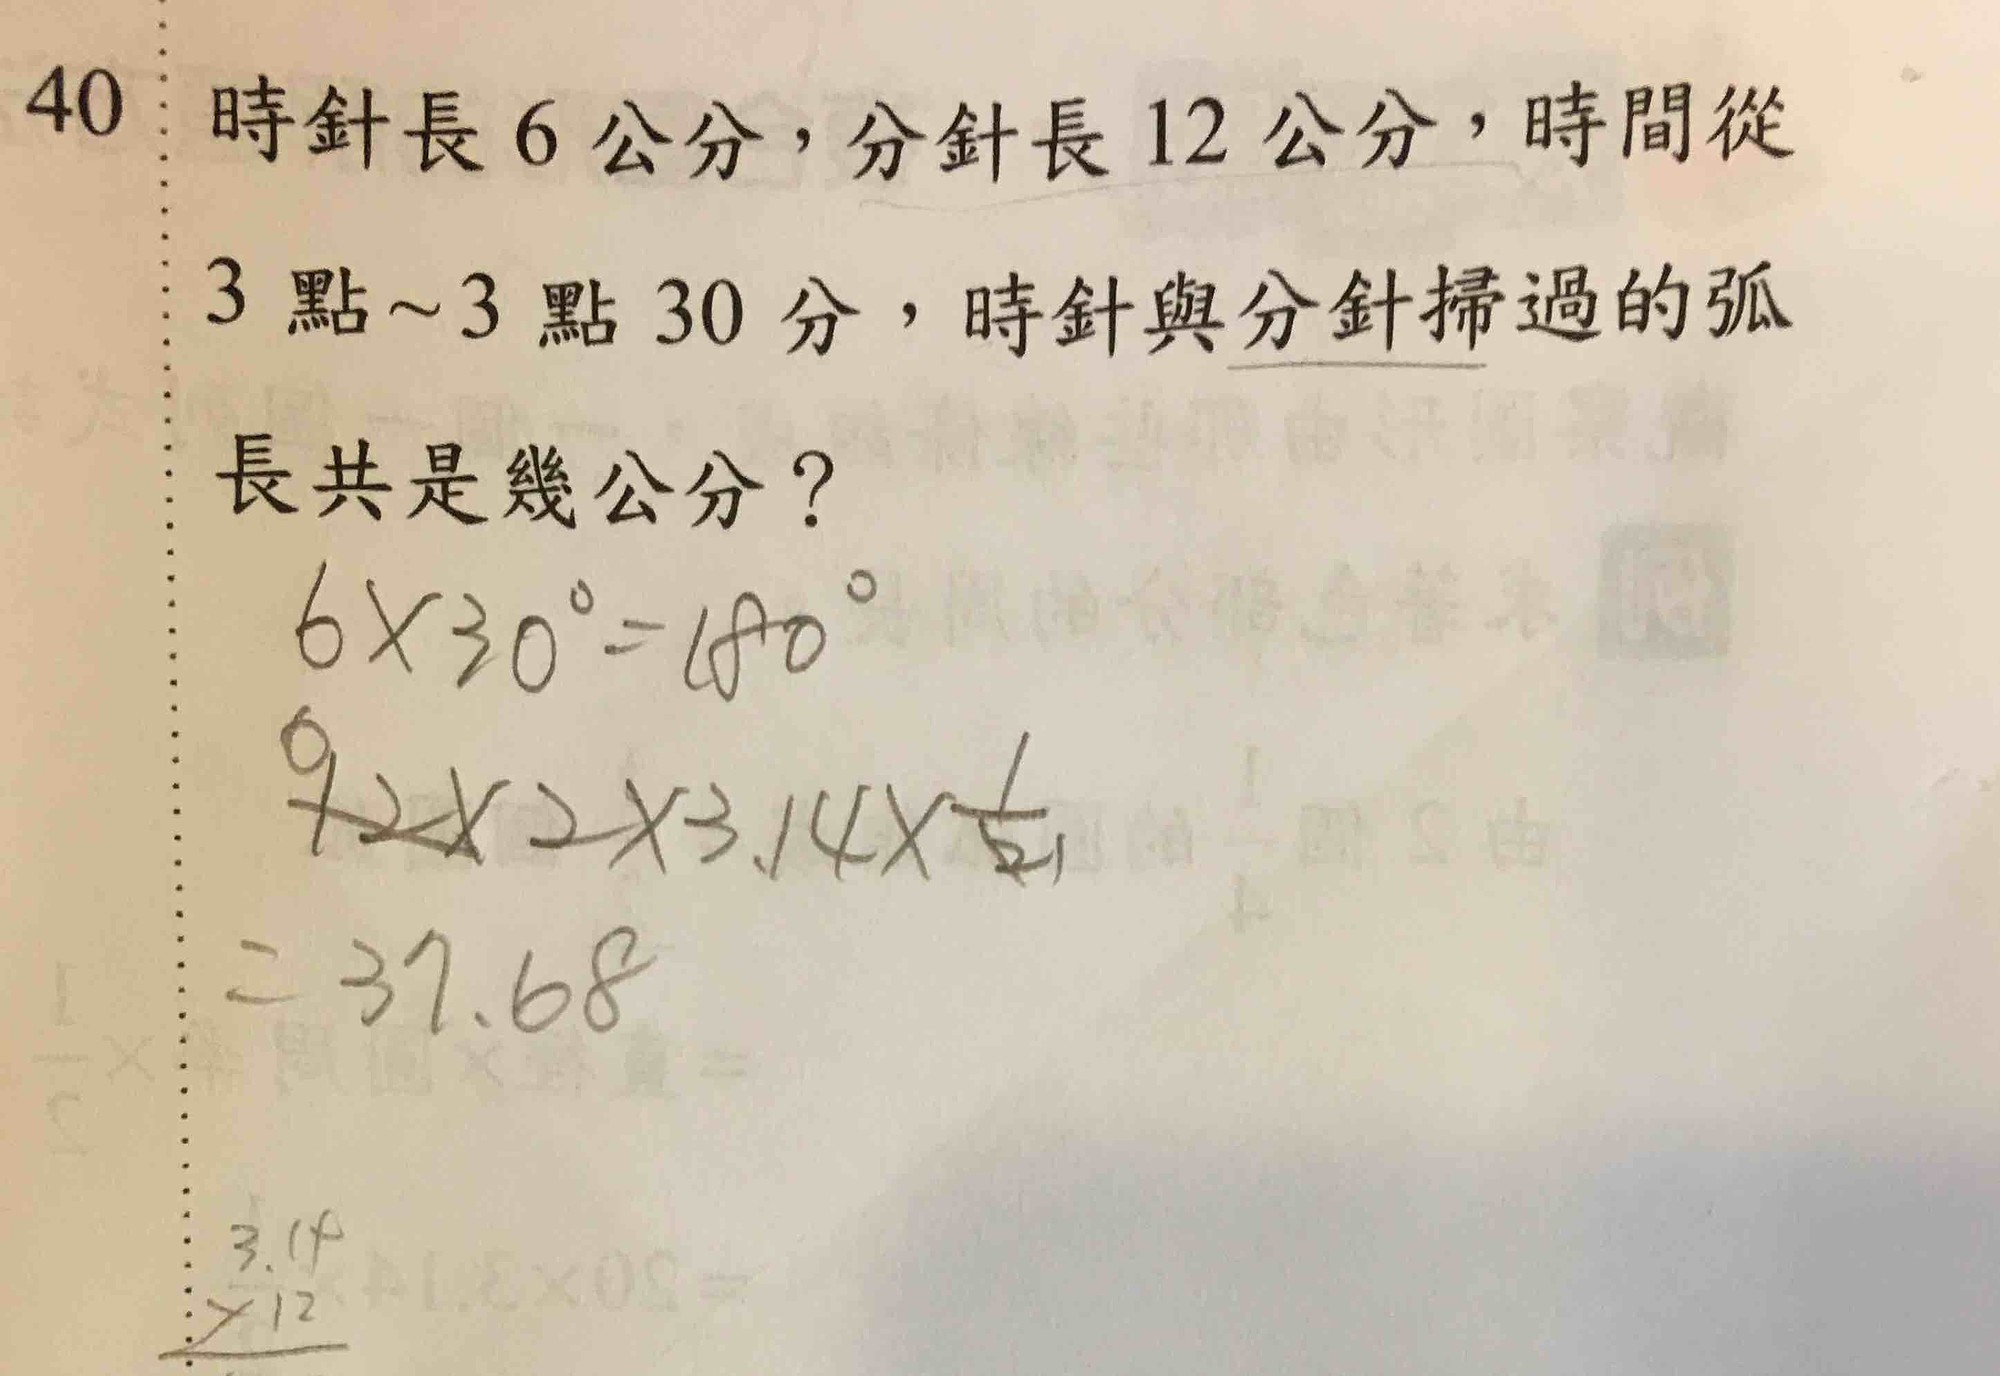 40 時針長 6 公分，分針長 12 公分，時間從
3 點~3 點 30 分，時針與分針掃過的弧
長共是幾公分？
6×30°=180°
6
12×2×3.14×1/2
=37.68
3.14
×12